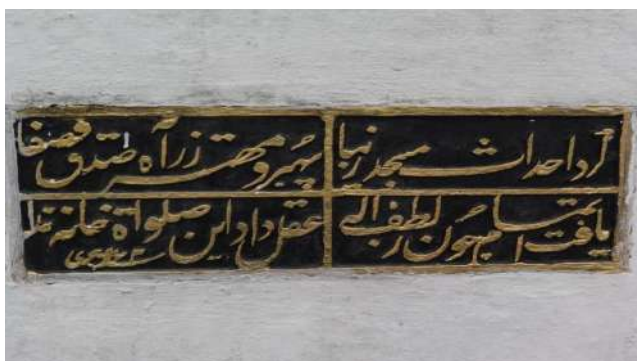 کرد احداث مسجد زیبا مهر ز راه صدق و صفا
یافت اتمام چون ز لطف الهی عقل داد این صلواة خانه
هجری